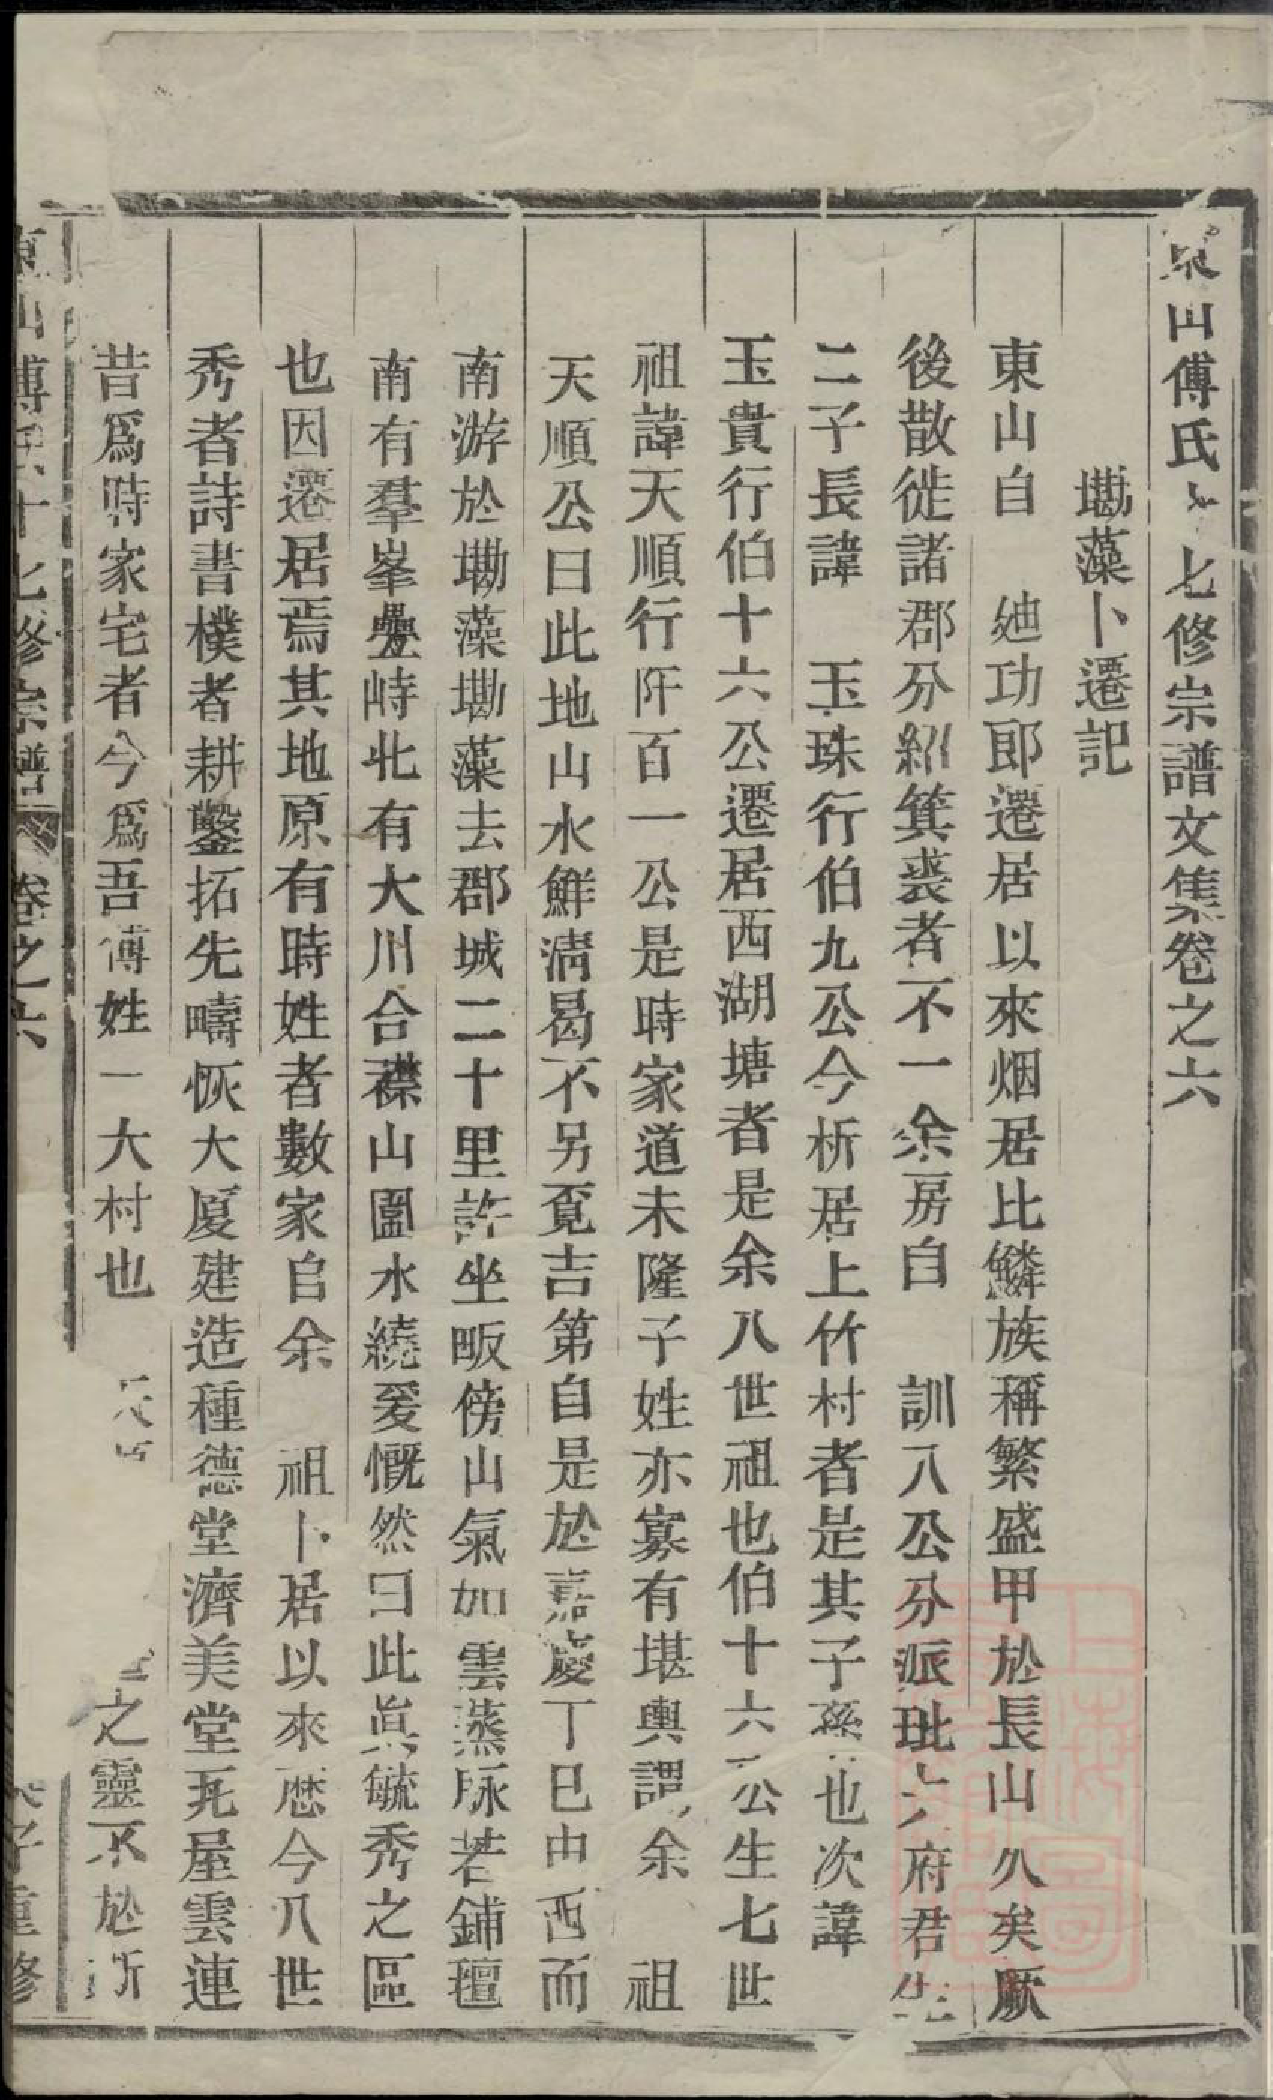 東山傅氏十七修宗譜文集卷之六
墈藻卜遷記
東山自 廸功郎遷居以來烟居比鱗族稱繁盛甲於長山久矣厥
後散徙諸郡分紹箕裘者不一余房自 訓八公分派玭六府君生
二子長諱 玉珠行伯九公今析居上竹村者是其子孫也次諱
玉貴行伯十六公遷居西湖塘者是余八世祖也伯十六公生七世
祖諱天順行阡百一公是時家道未隆子姓亦寡有堪輿謂余 祖
天順公曰此地山水鮮淸曷不另覔吉第自是於嘉慶丁巳由西而
南游於墈藻墈藻去郡城二十里許坐畈傍山氣如雲蒸脉若鋪氊
南有羣峯疊峙北有大川合襟山圍水繞爰慨然曰此眞毓秀之區
也因遷居焉其地原有時姓者數家自余 祖卜居以來歷今八世
秀者詩書樸者耕鑿拓先疇恢大厦建造種德堂濟美堂瓦屋雲連
昔爲時家宅者今爲吾傅姓一大村也 之靈不於斯
東山傅氏十七修宗譜 卷之六 子重修